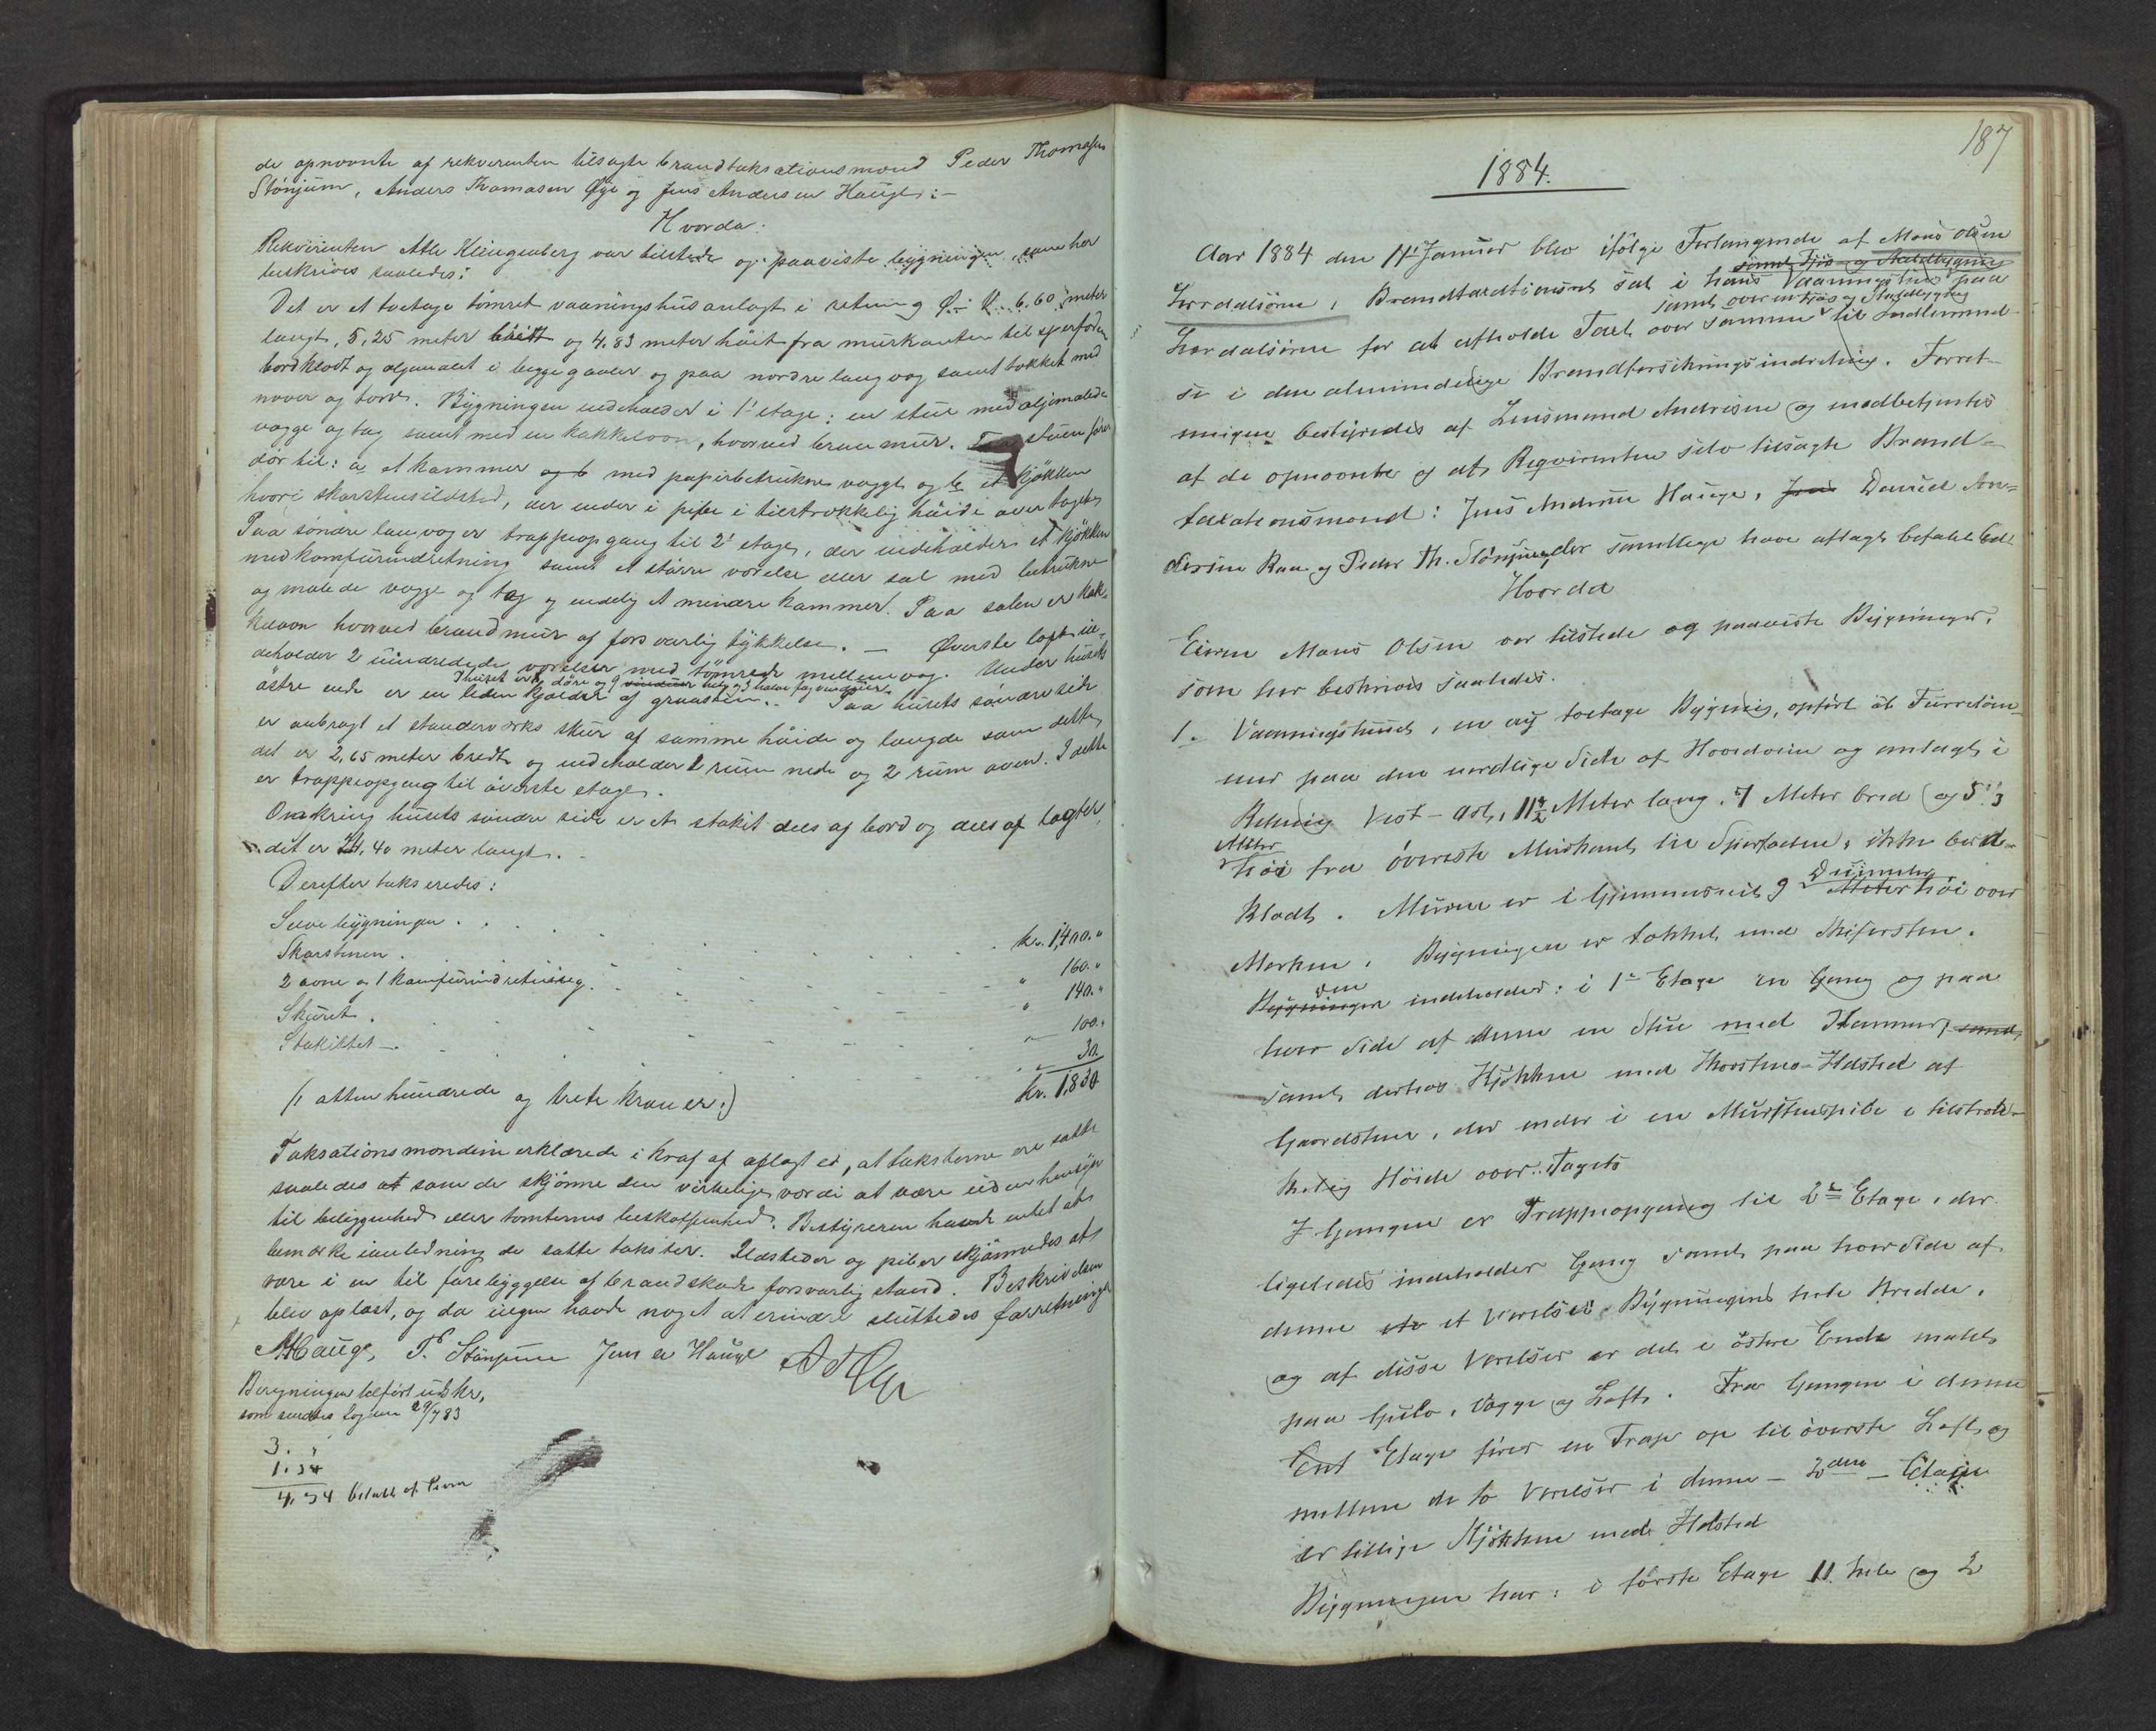 de opnævnte af rekvirenten tilsagte brandtaksationsmænd Peder Thomasen
Stönjum, Anders Thomasen Öye og Jens Andersen Hauge:-
Hvorda:
Rekvirenten Atle Klingenberg var tilstede og paaviste bygningen, som her
beskrives saaledes:
Det er et toetage tömret vaaningshus anlagt i retning Ö.: V. 6,60 meter
langt, 5,25 meter bredt og 4.83 meter höit fra murkanten til sperrfoden
bordklædt og oljemalet i begge gavler og paa nordre langvæg samt tækket med
næver og torv. Bygningen indeholder i 1' etage: en stue med oljemalede
vægge og tag samt med en kakkelovn, hvorved brandmur. Fra stuen förer
dör til: a et kammer og b med papirbetrukne vægge og b et kjökken
hvori skorstensildsted, der ender i pibe i tilstrækkelig höide over taget.
Paa söndre langvæg er trappeopgang til 2' etage, der indeholder et kjökken
med komfurindretning samt et större værelse eller sal med betrukne
og malede vægge og tag og endelig et mindre kammer. Paa salen er kak-
kelovn hvorved brandmur af forsvarlig tykkelse. — Överste loft in-
deholder 2 uindredede værelser med tömrede mellemvæg. Under husets
I huset er 8 döre og 9 vinduer hele og 3 halve fag vinduer.
östre ende er en liden kjælder af graasten. Paa husets söndre side
er anbragt et standerværks skur af samme höide og længde som dette,
det er 2,65 meter bredt og indeholder 2 rum nede og 2 rum oven. I dette
er trappeopgang til överste etage.
Omkring husets söndre side er et stakit dels af bord og dels af lægter,
det er 24,40 meter langt.
Derefter takseredes:
Selve bygningen . . . kr. 1,400. "
Skorstenen . . . " 160. "
2 ovne og 1 komfurindretning. . . " 140. "
Skuret . . . " 100. "
Stakittet . . . " 30.
(: atten hundrede og trete kroner :) Kr. 1,830
Taksationsmændene erklærede i kraf af aflagt ed, at taksterne ere satte
saaledes at som de skjönne den virkelige værdi at være uden hensyn
til beliggenhed eller tomternes beskaffenhed. Bestyreren havde intet at
bemærke i anledning de satte takster. Ildsteder og piber skjönnedes at
være i en til forebyggelse af brandskade forsvarlig stand. Beskrivelsen
blev oplæst, og da ingen havde noget at erindre sluttedes forretningen
Hauge, P. Stönjum Jens A Hauge A T Öye
Beregningen tilfört
som sendtes Sogn 29/7 83
3. "
1.54
4,54 betalt af
187
1884.
Aar 1884 den 11' Januar blev ifölge Forlangende af Mons Olsen
samt Fjös- og Staldbygning
Lærdalsören, Brandtaxtionsret sat i hans Vaaningshus paa
samt over en Fjös og Staldbygning
Lærdalsören for at afholde Taxt over samme til Indlemmel-
se i den almindelige Brandforsikringsindretning. Forret-
ningen bestyredes af Lensmand Andresen og medbetjentes
af de opnævnte og af Reqvirenten selv tilsagte Brand-
taxationsmænd: Jens Andersen Hauge, Jens Daniel An-
dersen Raa og Peder Th. Stönjum, der samtlige have aflagt befalet Ed.
Hvorda
Eieren Mons Olsen var tilstede og paaviste Bygninger,
som her beskrives saaledes.
1. Vaaningshuset, en ny toetage Bygning, opfört af Furretöm-
mer paa den nordlige Side af Hovedveien og anlagt i
Retning Vest-Ost, 11½ Meter lang, 7 Meter bred og 5,3
Meter
höi fra överste Murkant til Sperfoden, ikke bord-
klædt. Muren er i Gjennemsnit 9 Decimeter Meter höi over
Marken. Bygningen er tækket med Skifersten.
Den
Bygningen indeholder: i 1ste Etage en Gang og paa
hver Side af denne en Stue med Kammer, samt
samt derhos Kjökken med Skorstens-Ildsted af
Gaardstene, der ender i en Murstenspibe i tilstræk-
kelig Höide over Taget.
I Gangen er Trappeopgang til 2den Etage, der
ligeledes indeholder Gang samt paa hver Side af
denne et Værelse i Bygningens hele Bredde,
og af disse Værelser er det i östre Ende malet
paa Gulv, Vægge og Loft. Fra Gangen i denne
Etage förer en Trap op til överste Loft, og
mellem de to Værelser i denne - 2den - Etage
er tillige Kjökken med Ildsted
Bygningen har: i förste Etage 11 hele og 2